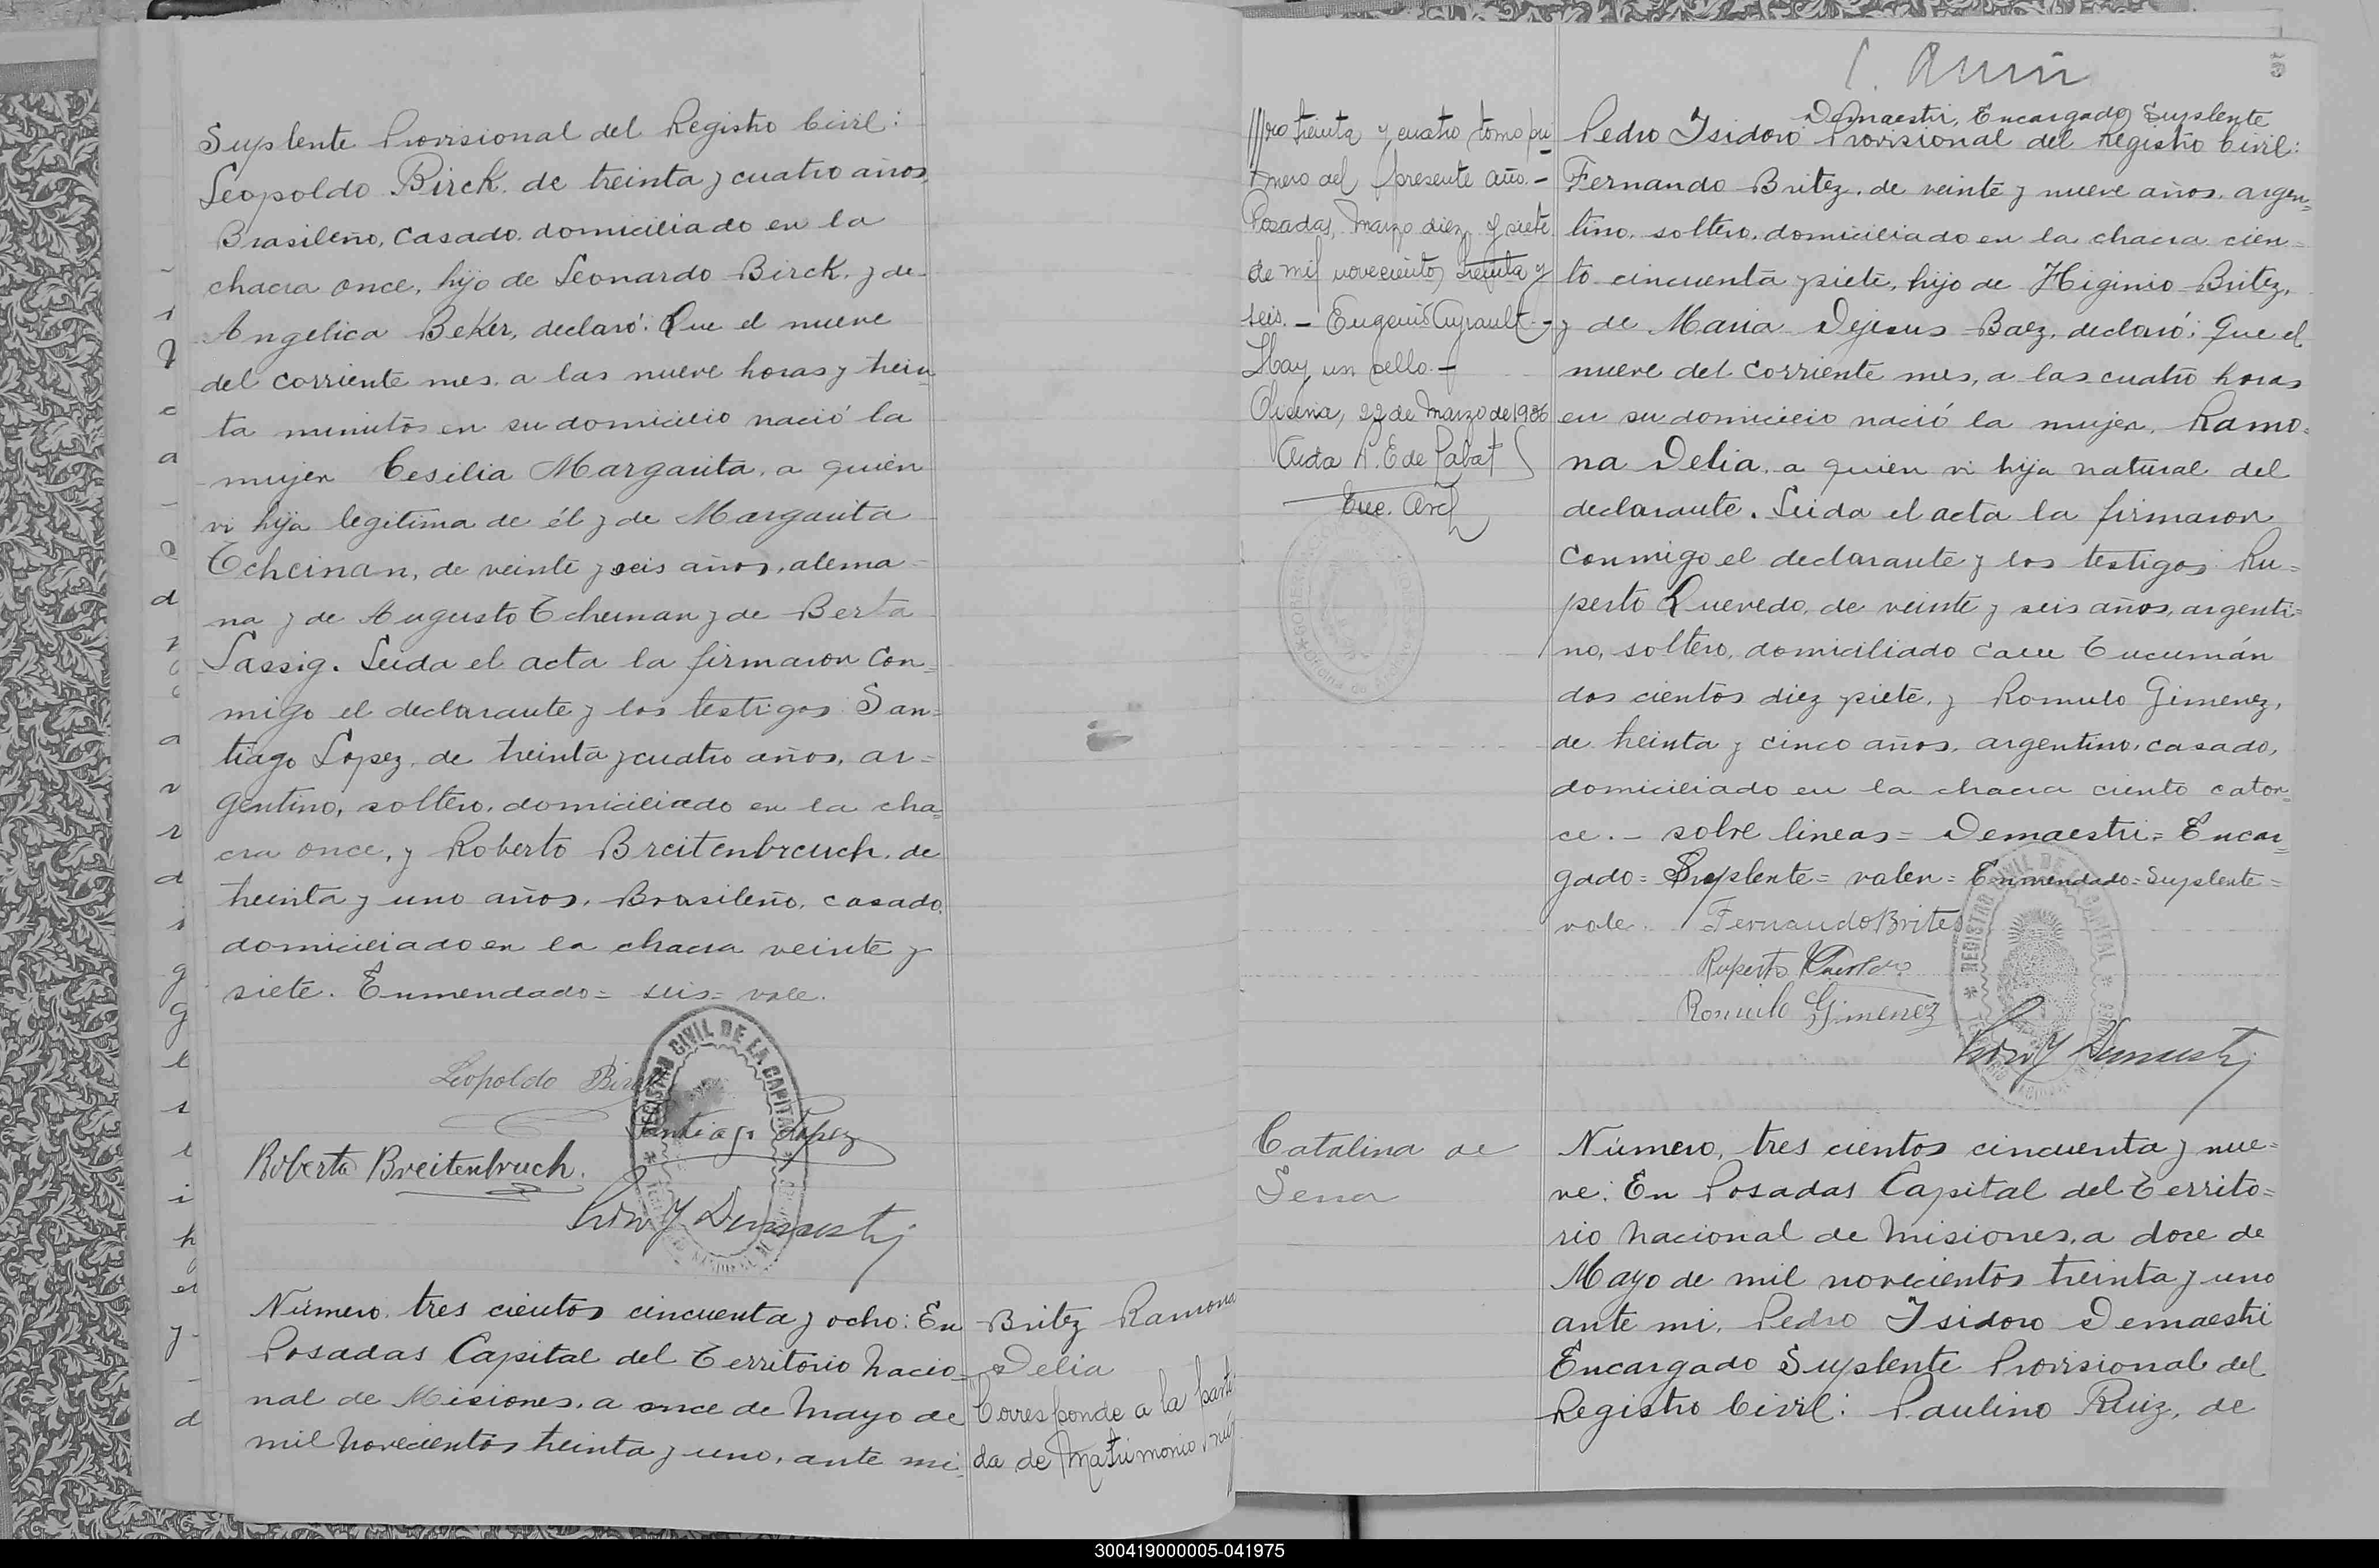 Suplente Provisional del Registro Civil:
Leopoldo Birck. de treinta y cuatro años,
Brasileño, casado. domiciliado en la
chacra once, hijo de Leonardo Birck. y de
Angelica Beker, declaró: Que el nueve
del corriente mes. a las nueve horas y trein-
ta minutos en su domicilio nació la
mujer Cesilia Margarita, a quien
vi hija legitima de él y de Margarita
Tcheinan, de veinte y seis años, alema-
na y de Augusto Tcheinan y de Berta
Lassig. Leida el acta la firmaron con=
migo el declarante y los testigos San=
tiago Lopez, de treinta y cuatro años, ar=
gentino, soltero. domiciliado en la cha=
cra once, y Roberto Breitenbreuch. de
treinta y uno años. Brasileño, casado.
domiciliado en la chacra veinte y
siete. Enmendado= seis= vale.
Leopoldo Birck
Santiago Lopez
Roberto Breitenbruch.
REGISTRO CIVIL DE LA CAPITAL
Número. tres cientos cincuenta y ocho: En
Posadas Capital del Territorio Nacio=
nal de Misiones. a once de Mayo de
mil novecientos treinta y uno, ante mi
Britez Ramona
Delia
Corresponde a la parti
da de Matrimonio nú
mero treinta y cuatro tomo pri-
mero del presente año.-
Posadas, Marzo diez y siete
de mil novecientos treinta y
seis. - Eugenio Ayrault.-
Hay un sello.-
Oficina, 27 de Marzo de 1936
Enc. Arch
5
Demaestri, Encargado, Suplente
Pedro Isidoro Provisional del Registro Civil:
Fernando Britez. de veinte y nueve años. argen=
tino. soltero. domiciliado en la chacra cien=
to cincuenta y siete, hijo de Higinio Britez,
y de Maria Dejesus Baez, declaró: Que el
nueve del corriente mes, a las cuatro horas
en su domicilio nació la mujer, Ramo=
na Delia. a quien vi hija natural del
declarante. Leida el acta la firmaron
conmigo el declarante y los testigos Ru=
perto Quevedo, de veinte y seis años, argenti=
no, soltero, domiciliado calle Tucumán
dos cientos diez y siete, y Romulo Gimenez,
de treinta y cinco años, argentino, casado,
domiciliado en la chacra ciento cator=
ce.- sobre lineas= Demaestri= Encar=
gado= Suplente= valen= Enmendado= Suplente=
vale. Fernando Brites
Ruperto Quevedo
Romulo Gimenez
REGISTRO CIVIL DE LA CAPITAL
Catalina de
Sena
Número, tres cientos cincuenta y nue=
ve: En Posadas Capital del Territo=
rio Nacional de Misiones, a doce de
Mayo de mil novecientos treinta y uno
ante mi, Pedro Isidoro Demaestri
Encargado Suplente Provisional del
Registro Civil: Paulino Ruiz, de
300419000005-041975